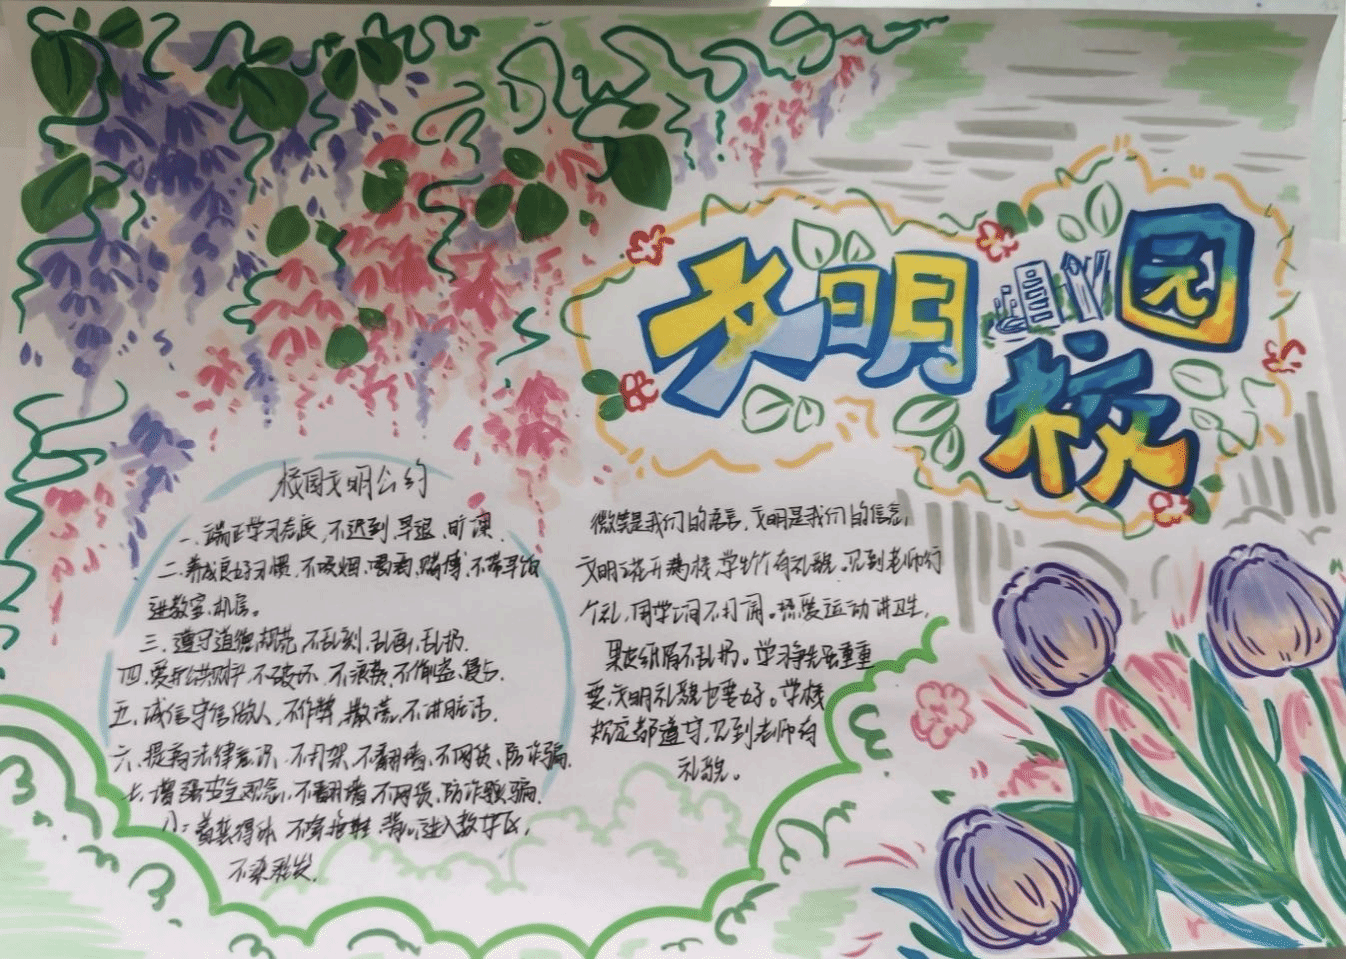 文明
校园
校园文明公约
一、端正学习态度,不迟到、早退、旷课.
二、养成良好习惯,不吸烟、喝酒、赌博,不带早饭
进教室、机房。
三、遵守道德规范,不乱刻、乱画、乱扔.
四、爱护公共财产,不破坏、不浪费、不偷盗、侵占.
五、诚信守信做人,不作弊、撒谎、不讲脏话.
六、提高法律意识,不打架、不翻墙、不网贷、防诈骗.
七、增强安全观念、不翻墙不网贷、防诈骗.
八:着装得体 不穿拖鞋、背心进入教学区,
不染彩发.
微笑是我们的语言,文明是我们的信念,
文明之花开满校,学生个个有礼貌。见到老师行
个礼,同学之间不打闹。热爱运动讲卫生,
果皮纸屑不乱扔。学习争先虽重
要,文明礼貌也要好。学校
规定都遵守,见到老师有
礼貌。